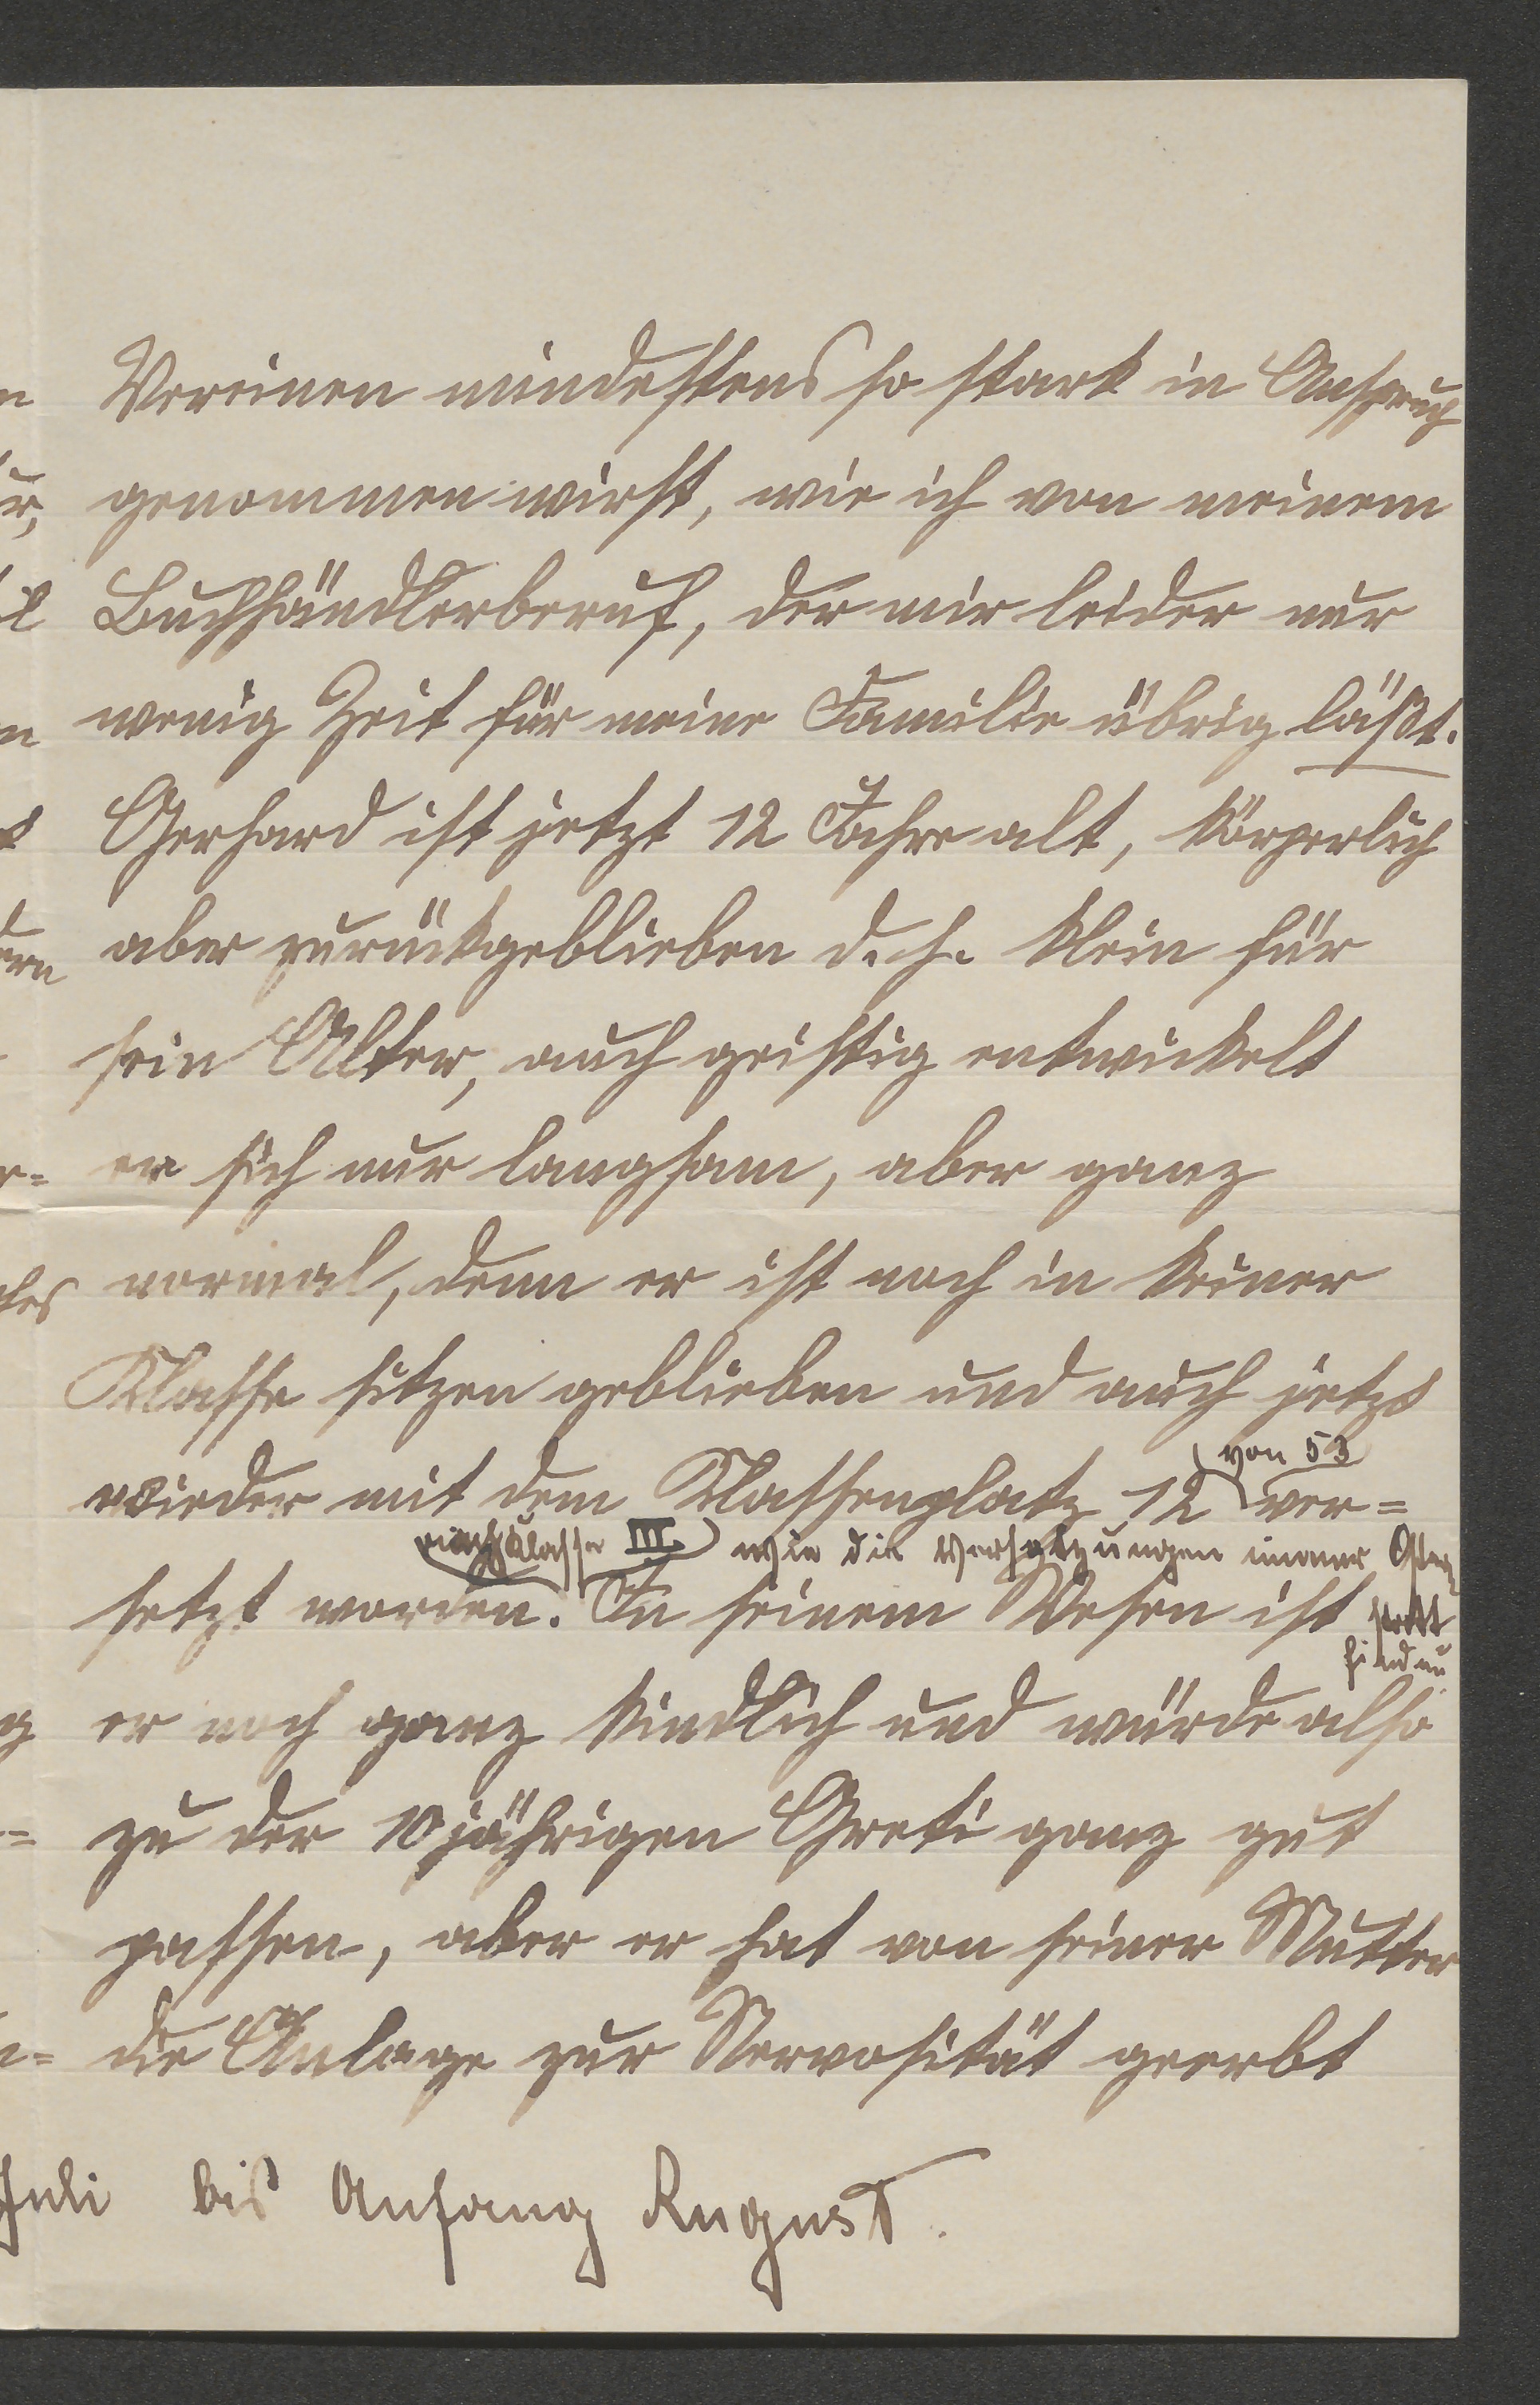 Vereinen mindestens so stark in Anspruch
genommen wirst, wie ich von meinem
Buchhändlerberuf, der mir leider nur
wenig Zeit für meine Familie übrig läßt.
Gerhard ist jetzt 12 Jahre alt, körperlich
aber zurückgeblieben d. h. klein für
sein Alter, auch geistig entwickelt
er sich nur langsam, aber ganz
normal, denn er ist noch in keiner
Klasse sitzen geblieben und auch jetzt
von 53
wieder mit dem Klassenplatz 12 ver=
nach Klasse III. wie die Versetzungen immer Ostern
setzt worden. In seinem Wesen ist statt
finden
er noch ganz kindlich und würde also
zu der 10jährigen Greti ganz gut
passen, aber er hat von seiner Mutter
die Anlage zur Nervosität geerbt
Juli bis Anfang August.